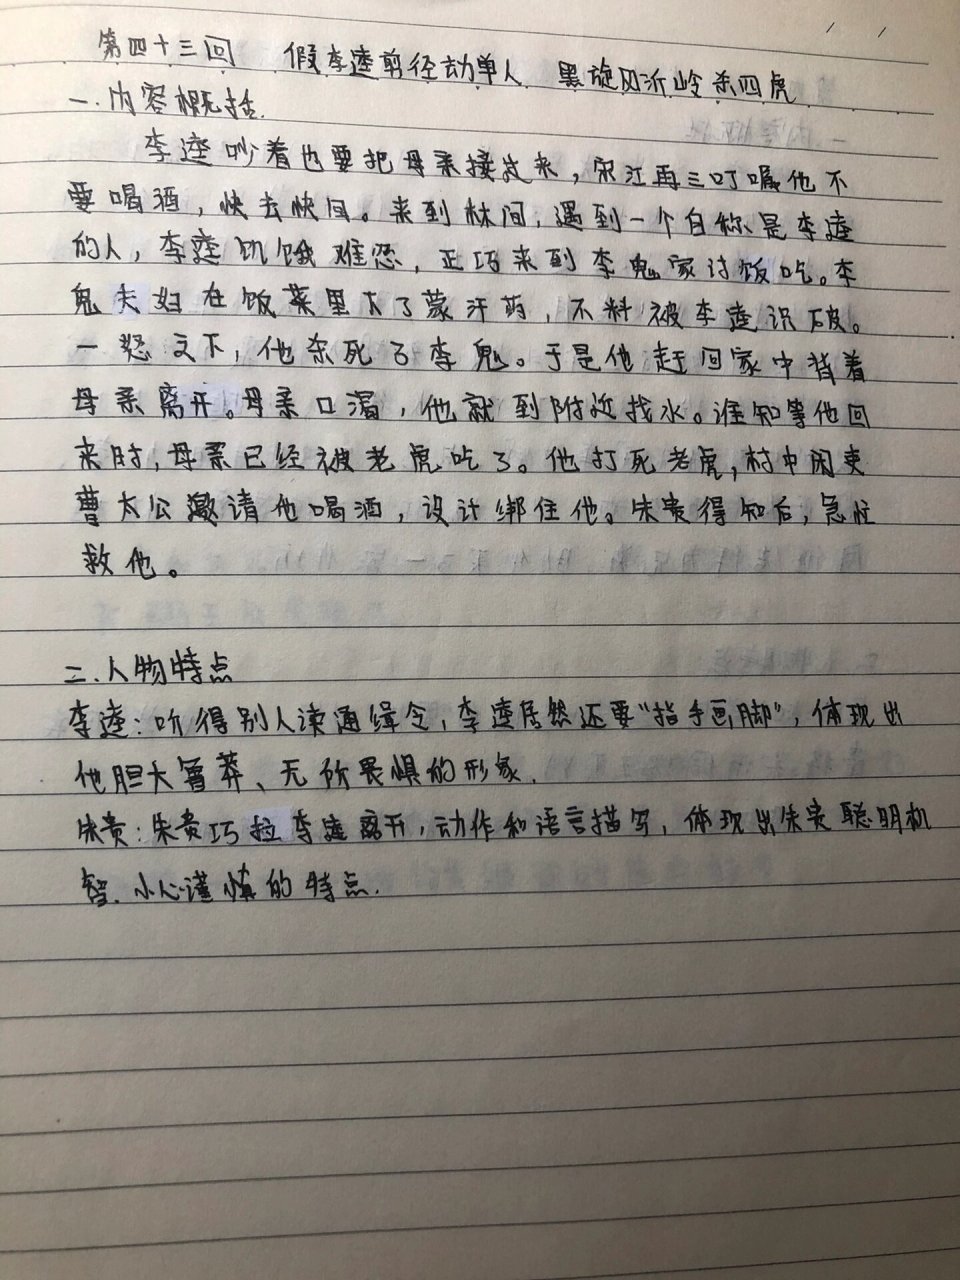 第四十三回 假李逵剪径劫单人 黑旋风沂岭杀四虎
一.内容概括.
李逵吵着也要把母亲接过来，宋江再三叮嘱他不
要喝酒，快去快回。来到林间，遇到一个自称是李逵
的人，李逵饥饿难忍，正巧来到李鬼家讨饭吃。李
鬼夫妇在饭菜里下了蒙汗药，不料被李逵识破。
一怒之下，他杀死了李鬼。于是他赶回家中背着
母亲离开。母亲口渴，他就到附近找水。谁知等他回
来时，母亲已经被老虎吃了。他打死老虎，村中闲吏
曹太公邀请他喝酒，设计绑住他。朱贵得知后，急忙
救他。
二.人物特点
李逵：听得别人读通缉令，李逵居然还要“指手画脚”，体现出
他胆大鲁莽、无所畏惧的形象.
朱贵：朱贵巧拉李逵离开，动作和语言描写，体现出朱贵聪明机
智.小心谨慎的特点.